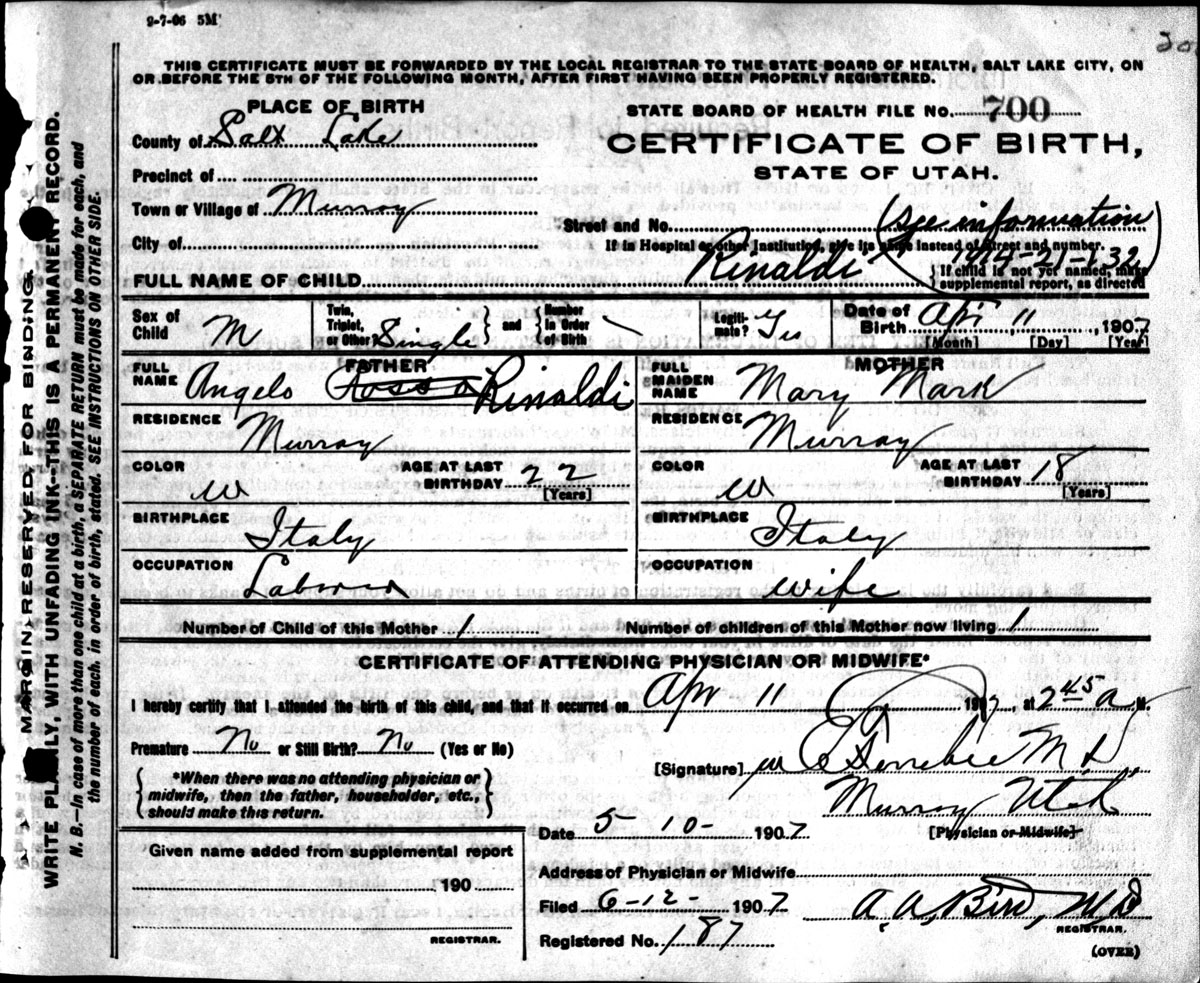 2-7-06 5M
20
THIS CERTIFICATE MUST BE FORWARDED BY THE LOCAL REGISTRAR TO THE STATE BOARD OF HEALTH, SALT LAKE CITY, ON
OR BEFORE THE 5TH OF THE FOLLOWING MONTH, AFTER FIRST HAVING BEEN PROPERLY REGISTERED.
PLACE OF BIRTH
STATE BOARD OF HEALTH FILE NO. 700
County of Salt Lake
CERTIFICATE OF BIRTH,
STATE OF UTAH.
Precinct of
Town or Village of Murray
Street and No. (See information
City of
If in Hospital or other Institution, give its name instead of Street and number.
1914-21-132)
FULL NAME OF CHILD Rinaldi
If child is not yet named, make
supplemental report, as directed
Sex of Child M
Twin, Triplet, or Other? Single
and Number in Order of Birth
Legiti-mate? Yes
Date of Birth Apr 11, 1907
[Month] [Day] [Year]
FATHER
MOTHER
FULL NAME Angelo Rosso Rinaldi
FULL MAIDEN NAME Mary Mark
RESIDENCE Murray
RESIDENCE Murray
COLOR W AGE AT LAST BIRTHDAY 22 [Years]
COLOR W AGE AT LAST BIRTHDAY 18 [Years]
BIRTHPLACE Italy
BIRTHPLACE Italy
OCCUPATION Laborer
OCCUPATION Wife
Number of Child of this Mother 1
Number of children of this Mother now living 1
CERTIFICATE OF ATTENDING PHYSICIAN OR MIDWIFE*
I hereby certify that I attended the birth of this child, and that it occurred on Apr 11 1907, at 2 45 a M.
Premature No or Still Birth? No (Yes or No)
*When there was no attending physician or
midwife, then the father, householder, etc.,
should make this return.
[Signature] M.D.
Murray Utah
Date 5 10- 1907
[Physician or Midwife]
Given name added from supplemental report
190
Address of Physician or Midwife
Filed 6-12- 1907
A. A. Bird, M.D.
REGISTRAR.
REGISTRAR.
Registered No. 187
(OVER)
MARGIN RESERVED FOR BINDING.
WRITE PLAINLY, WITH UNFADING INK—THIS IS A PERMANENT RECORD.
N. B.—In case of more than one child at a birth, a SEPARATE RETURN must be made for each, and
the number of each, in order of birth, stated. SEE INSTRUCTIONS ON OTHER SIDE.